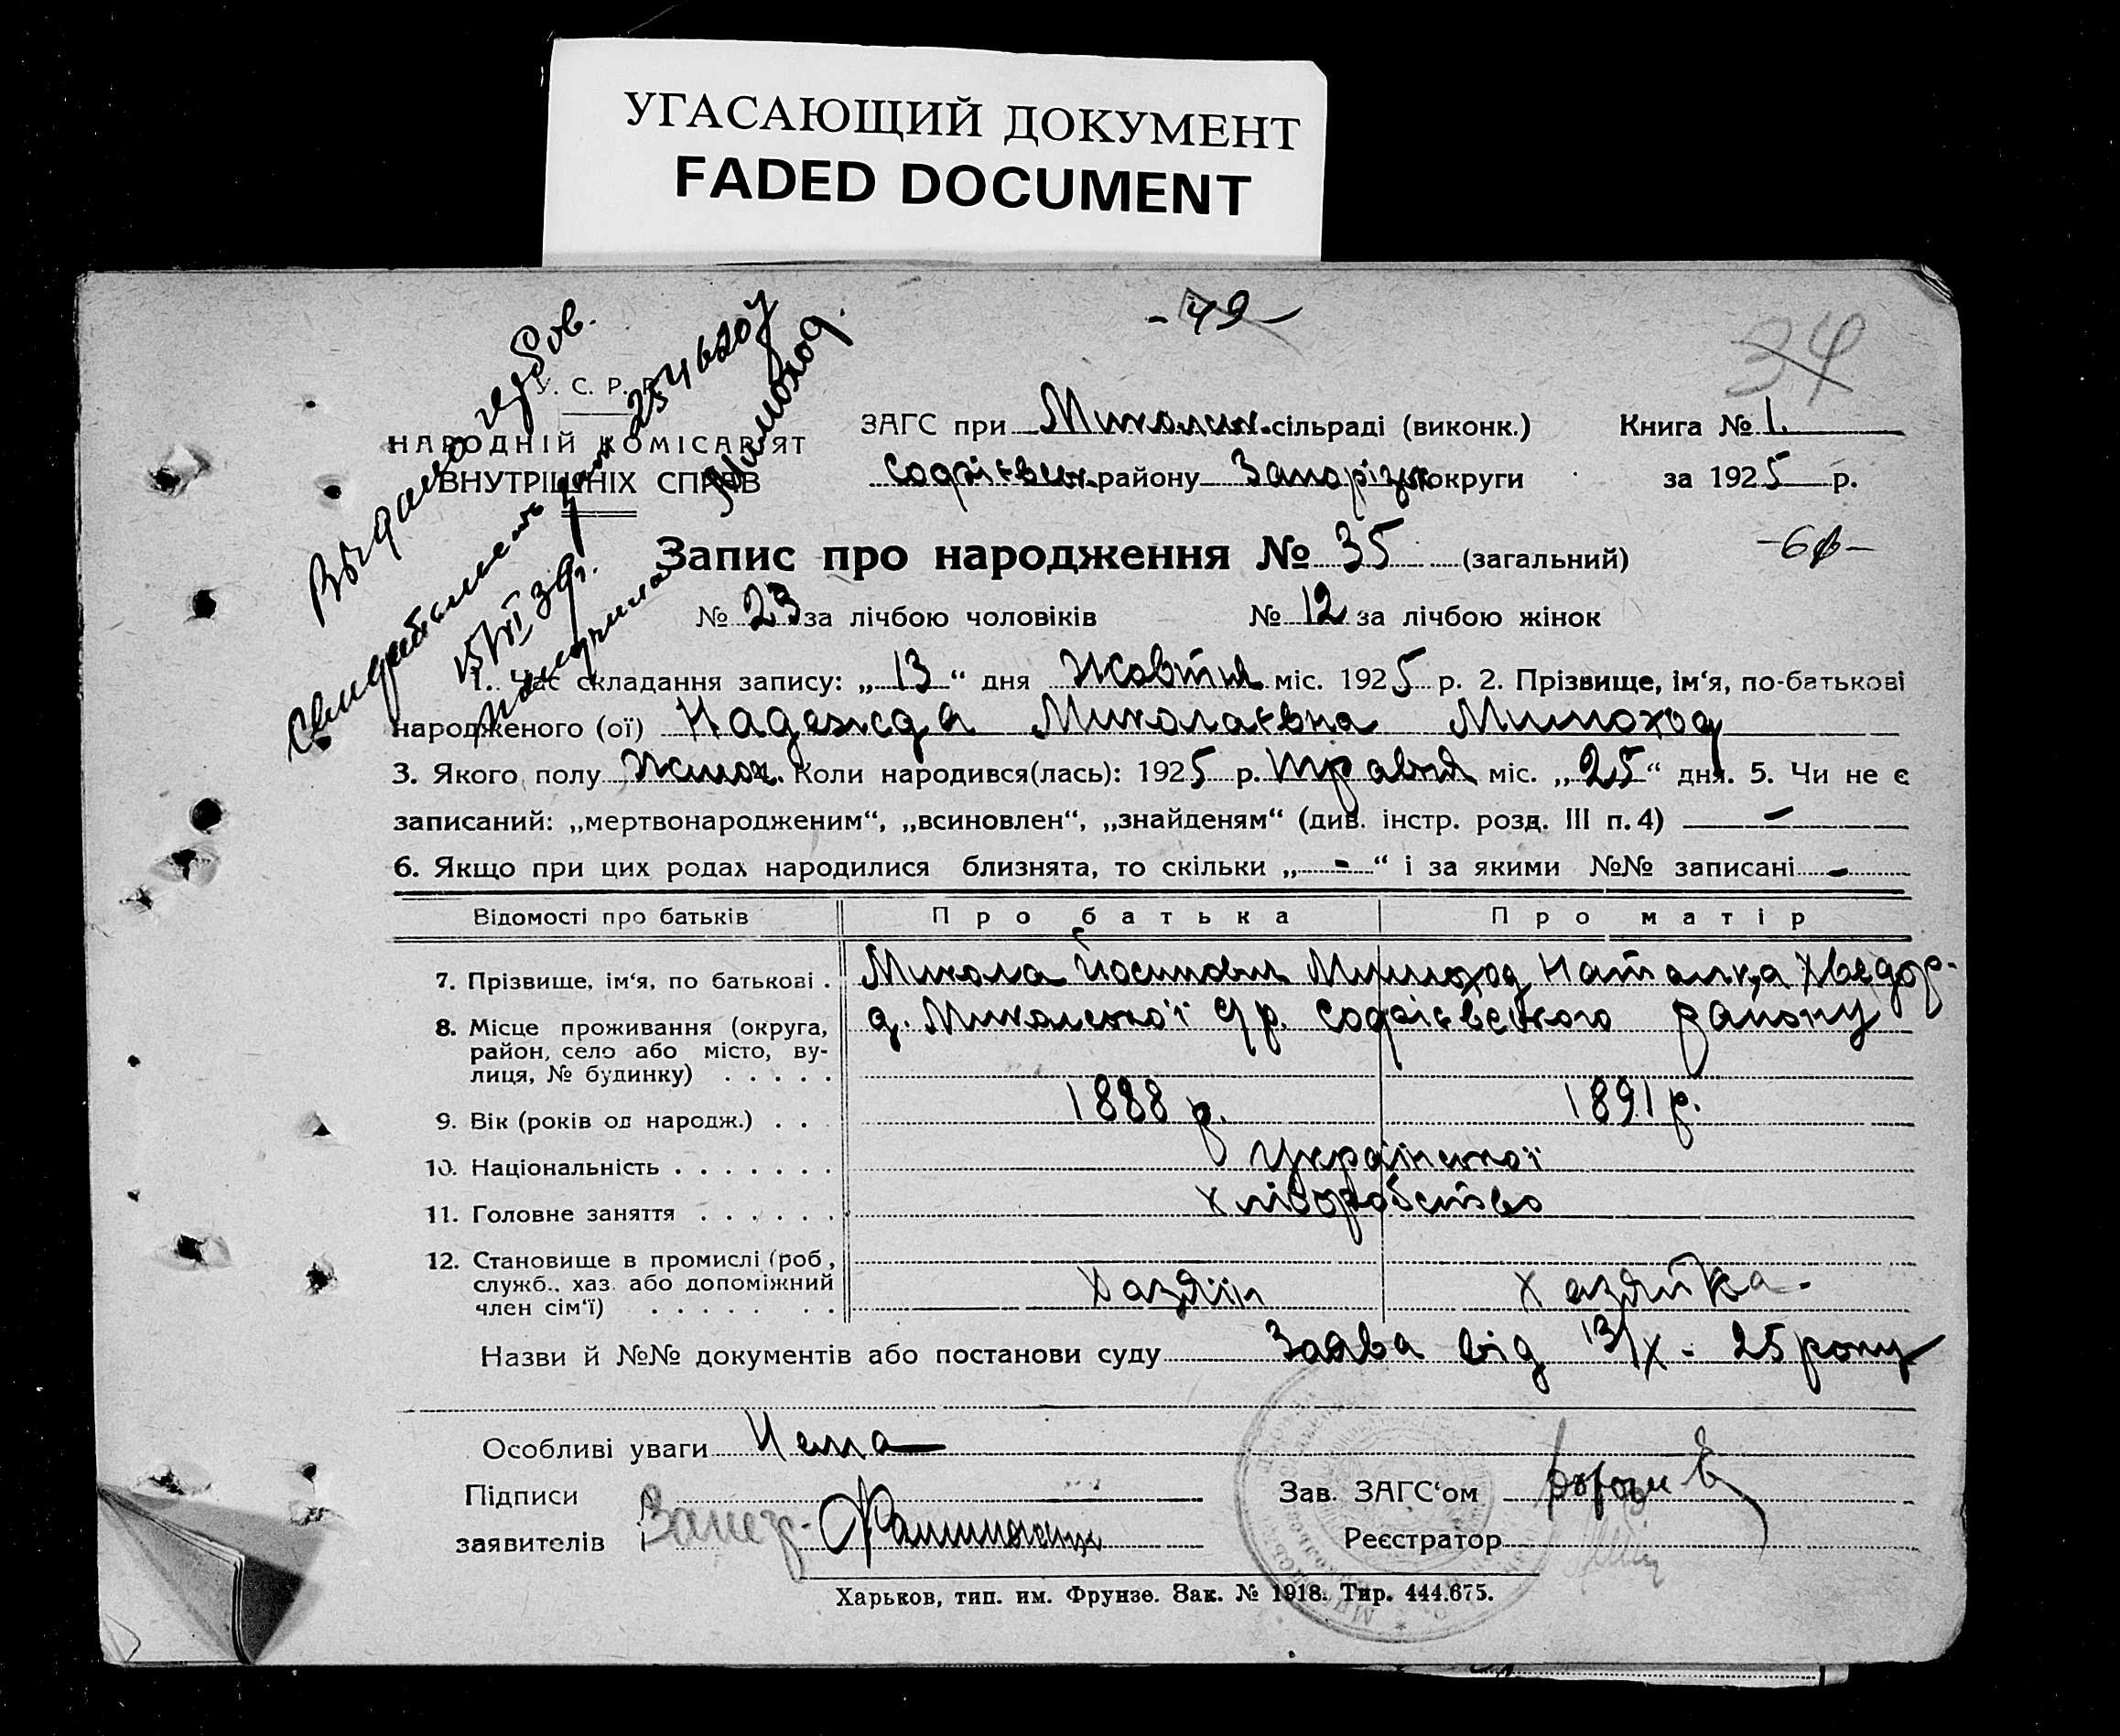 УГАСАЮЩИЙ ДОКУМЕНТ
FADED DOCUMENT
- 49 -
34
Выдано
Свидетельство
254620
15/VII 39г.
получила Мимоход.
У. С. Р. Р.
НАРОДНІЙ КОМІСАРІЯТ
ВНУТРІШНІХ СПРАВ
ЗАГС при Миколаи. сільраді (виконк.) Книга № 1
Софіївськ. району Запорізьк округи за 1925 р.
Запис про народження № 35 (загальний)
№ 23 за лічбою чоловіків № 12 за лічбою жінок
1. Час складання запису: „13“ дня Жовтня міс. 1925 р. 2. Прізвище, ім‘я, по-батькові
народженого (ої) Надежда Миколаєвна Мимоход
3. Якого полу Жіноч. Коли народився(лась): 1925 р. Травня міс. „25“ дня. 5. Чи не є
записаний: „мертвонародженим“, „всиновлен“, „знайденям“ (див. інстр. розд. III п. 4) —
6. Якщо при цих родах народилися близнята, то скільки „-“ і за якими №№ записані -
Відомості про батьків Про батька Про матір
7. Прізвище, ім‘я, по батькові . Микола Йосипович Мимоход Наталка Хведор.
8. Місце проживання (округа, д. Микольської с/р. Софієвського району
район, село або місто, ву-
лиця, № будинку) . . . . .
9. Вік (років од народж.) . . . 1888 р. 1891 р.
10. Національність . . . . . . . Української
11. Головне заняття . . . . . . Хліборобство
12. Становище в промислі (роб.,
служб., хаз. або допоміжний
член сім‘ї) . . . . . . . Хазяїн Хазяйка.
Назви й №№ документів або постанови суду Заява від 13/X - 25 року
Особливі уваги Нема
Підписи Зав. ЗАГС‘ом
заявителів Реєстратор
Харьков, тип. им. Фрунзе. Зак. № 1918. Тир. 444.675.